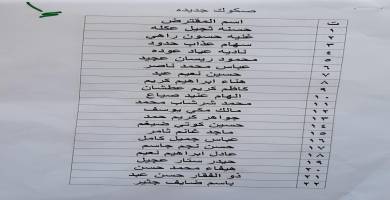 صكوك جديده
ت اسم المقترض
١ حسنه ثجيل عكله
٢ غنيه حسون راهي
٣ سهام عذاب حدود
٤ ناديه عياد عوده
٥ محمود ريسان عجيد
٦ عباس محمد ناصر
٧ حسين نعيم عبد
٨ هناء ابراهيم كريم
٩ كاظم كريم عطشان
١٠ الهام عنيد صياح
١١ محمد شرشاب محمد
١٢ مالك مكي يوسف
١٣ جواهر كريم حمد
١٤ حسين كوني ضيغم
١٥ ماجد غانم ثامر
١٦ عباس جميل كامل
١٧ حسن نجم جاسم
١٨ عادل ابراهيم نعيم
١٩ حيدر ستار عجيل
٢٠ هيفاء محمد حسن
٢١ ذو الفقار حسن عبد
٢٢ باسم ضايف جنير